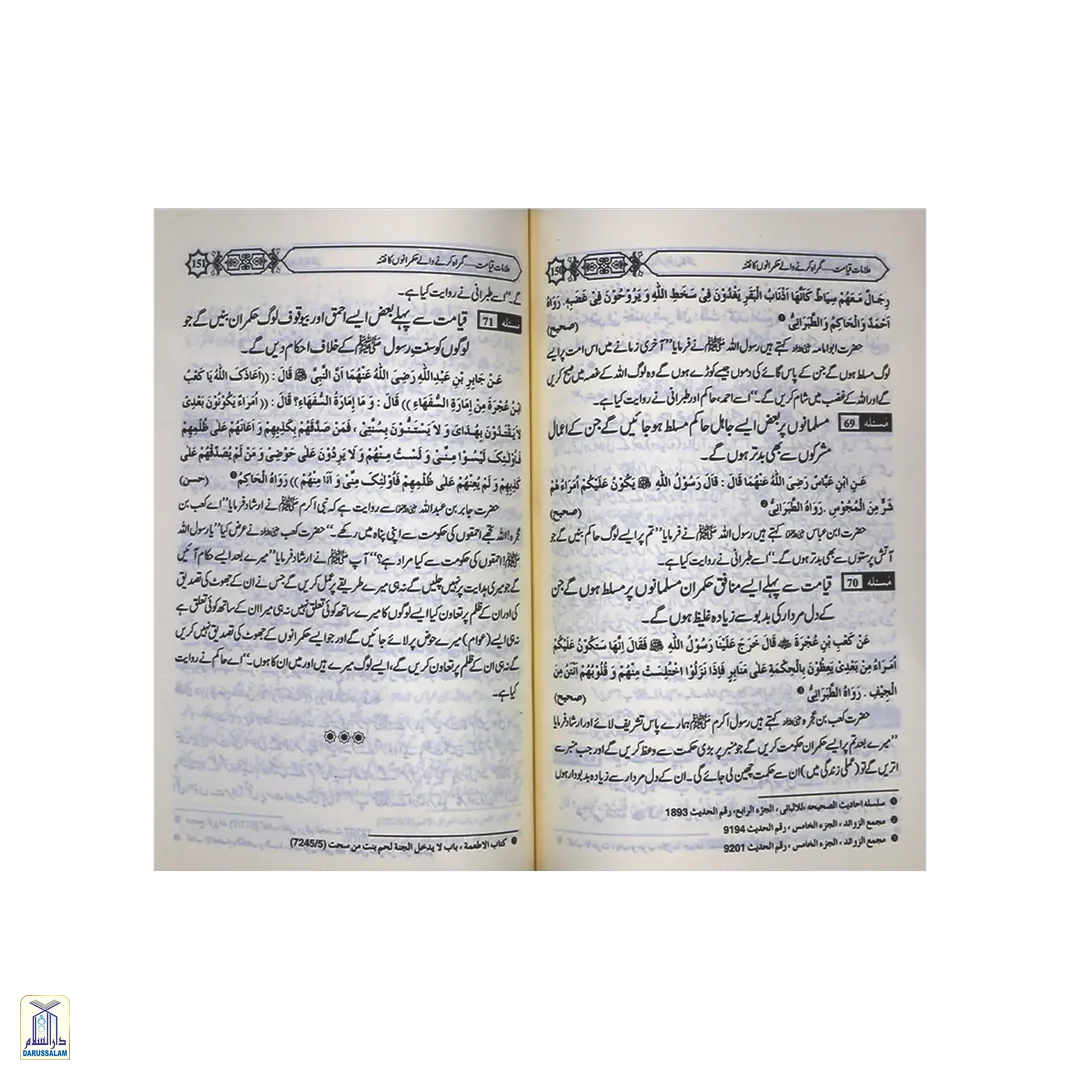 علامات قیامت....گمراہ کرنے والے حکمرانوں کا فتنہ
150
رِجَالٌ مَعَهُمْ سِيَاطٌ كَأَنَّهَا أَذْنَابُ الْبَقَرِ يَغْدُوْنَ فِيْ سَخَطِ اللّٰهِ وَ يَرُوْحُوْنَ فِيْ غَضَبِهٖ. رَوَاهُ
أَحْمَدُ وَالْحَاكِمُ وَ الطَّبَرَانِيُّ ❶ (صحیح)
حضرت ابوامامہ رضی اللہ عنہ کہتے ہیں رسول اللہ ﷺ نے فرمایا ”آخری زمانے میں اس امت پر ایسے
لوگ مسلط ہوں گے جن کے پاس گائے کی دموں جیسے کوڑے ہوں گے وہ لوگ اللہ کے غصہ میں صبح کریں
گے اور اللہ کے غضب میں شام کریں گے۔“ اسے احمد، حاکم اور طبرانی نے روایت کیا ہے۔
مسئلہ 69 مسلمانوں پر بعض ایسے جاہل حاکم مسلط ہو جائیں گے جن کے اعمال
مشرکوں سے بھی بدتر ہوں گے۔
عَنِ ابْنِ عَبَّاسٍ رَضِيَ اللّٰهُ عَنْهُمَا قَالَ : قَالَ رَسُوْلُ اللّٰهِ ﷺ يَكُوْنُ عَلَيْكُمْ أُمَرَاءُ هُمْ
شَرٌّ مِنَ الْمَجُوْسِ . رَوَاهُ الطَّبَرَانِيُّ ❷ (صحیح)
حضرت ابن عباس رضی اللہ عنہما کہتے ہیں رسول اللہ ﷺ نے فرمایا ”تم پر ایسے لوگ حاکم بنیں گے جو
آتش پرستوں سے بھی بدتر ہوں گے۔“ اسے طبرانی نے روایت کیا ہے۔
مسئلہ 70 قیامت سے پہلے ایسے منافق حکمران مسلمانوں پر مسلط ہوں گے جن
کے دل مردار کی بدبو سے زیادہ غلیظ ہوں گے۔
عَنْ كَعْبِ بْنِ عُجْرَةَ ﷺ قَالَ خَرَجَ عَلَيْنَا رَسُوْلُ اللّٰهِ ﷺ فَقَالَ إِنَّهَا سَتَكُوْنُ عَلَيْكُمْ
أُمَرَاءُ مِنْ بَعْدِيْ يَعِظُوْنَ بِالْحِكْمَةِ عَلٰى مَنَابِرٍ فَإِذَا نَزَلُوْا اخْتُلِسَتْ مِنْهُمْ وَ قُلُوْبُهُمْ أَنْتَنُ مِنَ
الْجِيَفِ . رَوَاهُ الطَّبَرَانِيُّ ❸ (صحیح)
حضرت کعب بن عجرہ رضی اللہ عنہ کہتے ہیں رسول اکرم ﷺ ہمارے پاس تشریف لائے اور ارشاد فرمایا
”میرے بعد تم پر ایسے حکمران حکومت کریں گے جو منبر پر بڑی حکمت سے وعظ کریں گے اور جب منبر سے
اتریں گے تو (عملی زندگی میں) ان سے حکمت چھین لی جائے گی۔ ان کے دل مردار سے زیادہ بدبودار ہوں
❶ سلسلہ احادیث الصحیحہ ،للالبانی ، الجزء الرابع، رقم الحدیث 1893
❷ مجمع الزوائد ، الجزء الخامس ، رقم الحدیث 9194
❸ مجمع الزوائد ، الجزء الخامس ، رقم الحدیث 9201
علامات قیامت....گمراہ کرنے والے حکمرانوں کا فتنہ
151
گے۔“ اسے طبرانی نے روایت کیا ہے۔
مسئلہ 71 قیامت سے پہلے بعض ایسے احمق اور بیوقوف لوگ حکمران بنیں گے جو
لوگوں کو سنتِ رسول ﷺ کے خلاف احکام دیں گے۔
عَنْ جَابِرِ بْنِ عَبْدِاللّٰهِ رَضِيَ اللّٰهُ عَنْهُمَا أَنَّ النَّبِيَّ ﷺ قَالَ : ((أَعَاذَكَ اللّٰهُ يَا كَعْبُ
ابْنَ عُجْرَةَ مِنْ إِمَارَةِ السُّفَهَاءِ )) قَالَ : وَ مَا إِمَارَةُ السُّفَهَاءِ؟ قَالَ : (( أُمَرَاءُ يَكُوْنُوْنَ بَعْدِيْ
لَا يَقْتَدُوْنَ بِهُدَايَ وَ لَا يَسْتَنُّوْنَ بِسُنَّتِيْ ، فَمَنْ صَدَّقَهُمْ بِكَذِبِهِمْ وَ أَعَانَهُمْ عَلٰى ظُلْمِهِمْ
فَأُولٰئِكَ لَيْسُوْا مِنِّيْ وَ لَسْتُ مِنْهُمْ وَ لَا يَرِدُوْنَ عَلٰى حَوْضِيْ وَ مَنْ لَمْ يُصَدِّقْهُمْ عَلٰى
كَذِبِهِمْ وَ لَمْ يُعِنْهُمْ عَلٰى ظُلْمِهِمْ فَأُولٰئِكَ مِنِّيْ وَ أَنَا مِنْهُمْ )) رَوَاهُ الْحَاكِمُ ❶ (حسن)
حضرت جابر بن عبداللہ رضی اللہ عنہما سے روایت ہے کہ نبی اکرم ﷺ نے ارشاد فرمایا ”اے کعب بن
عجرہ! اللہ تجھے احمقوں کی حکومت سے اپنی پناہ میں رکھے۔“ حضرت کعب رضی اللہ عنہ نے عرض کیا ”یا رسول اللہ
ﷺ! احمقوں کی حکومت سے کیا مراد ہے؟“ آپ ﷺ نے ارشاد فرمایا ”میرے بعد ایسے حکام آئیں
گے جو میری ہدایت پر نہیں چلیں گے نہ ہی میرے طریقے پر عمل کریں گے جس نے ان کے جھوٹ کی تصدیق
کی اور ان کے ظلم پر تعاون کیا ایسے لوگوں کا میرے ساتھ کوئی تعلق نہیں نہ ہی میرا ان کے ساتھ کوئی تعلق ہے
نہ ہی ایسے (عوام) میرے حوض پر لائے جائیں گے اور جو ایسے حکمرانوں کے جھوٹ کی تصدیق نہیں کریں
گے نہ ہی ان کے ظلم پر تعاون کریں گے، ایسے لوگ میرے ہیں اور میں ان کا ہوں۔“ اے حاکم نے روایت
کیا ہے۔
❶ کتاب الاطعمة ، باب لا یدخل الجنة لحم بنت من سحت (7245/5)
دارالسلام
DARUSSALAM